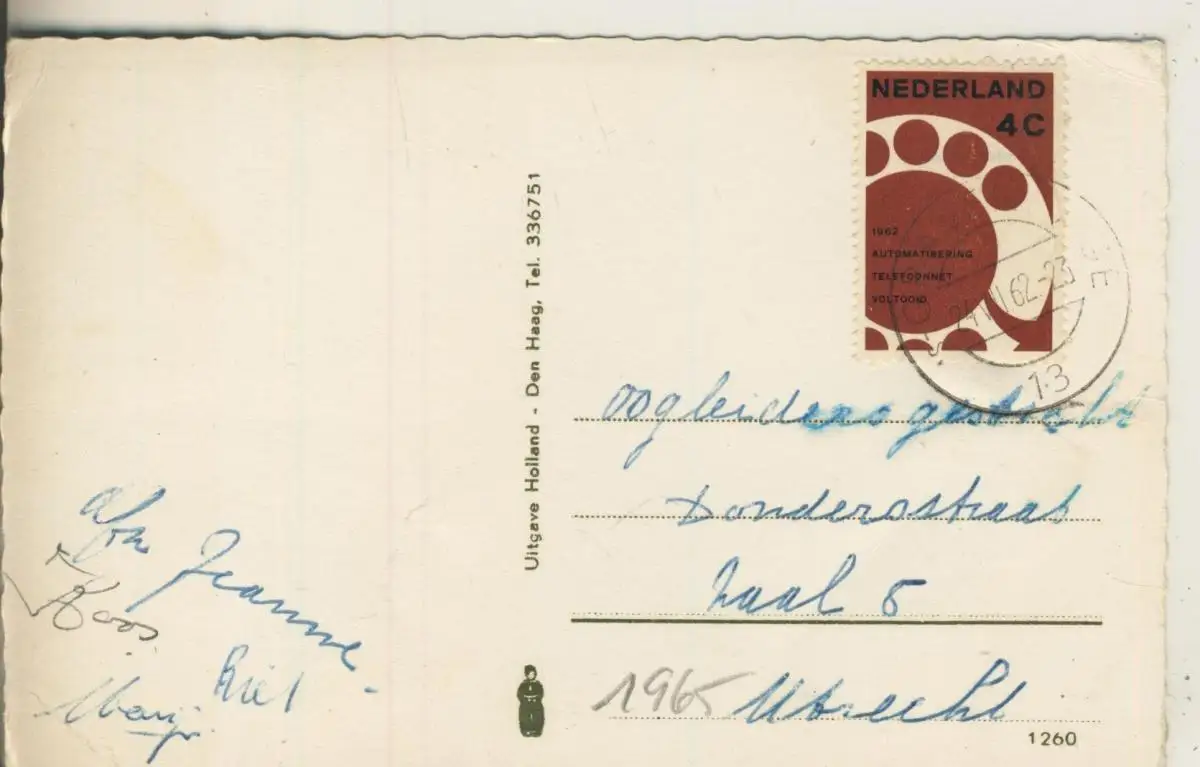 NEDERLAND
4C
1962
AUTOMATISERING
TELEFOONNET
VOLTOOID
62-23
13
Uitgave Holland - Den Haag, Tel. 336751
oogleidersgesticht
Dondersstraat
Zaal 8
1965 Utrecht
1260
Jeanne
Koos
Riet